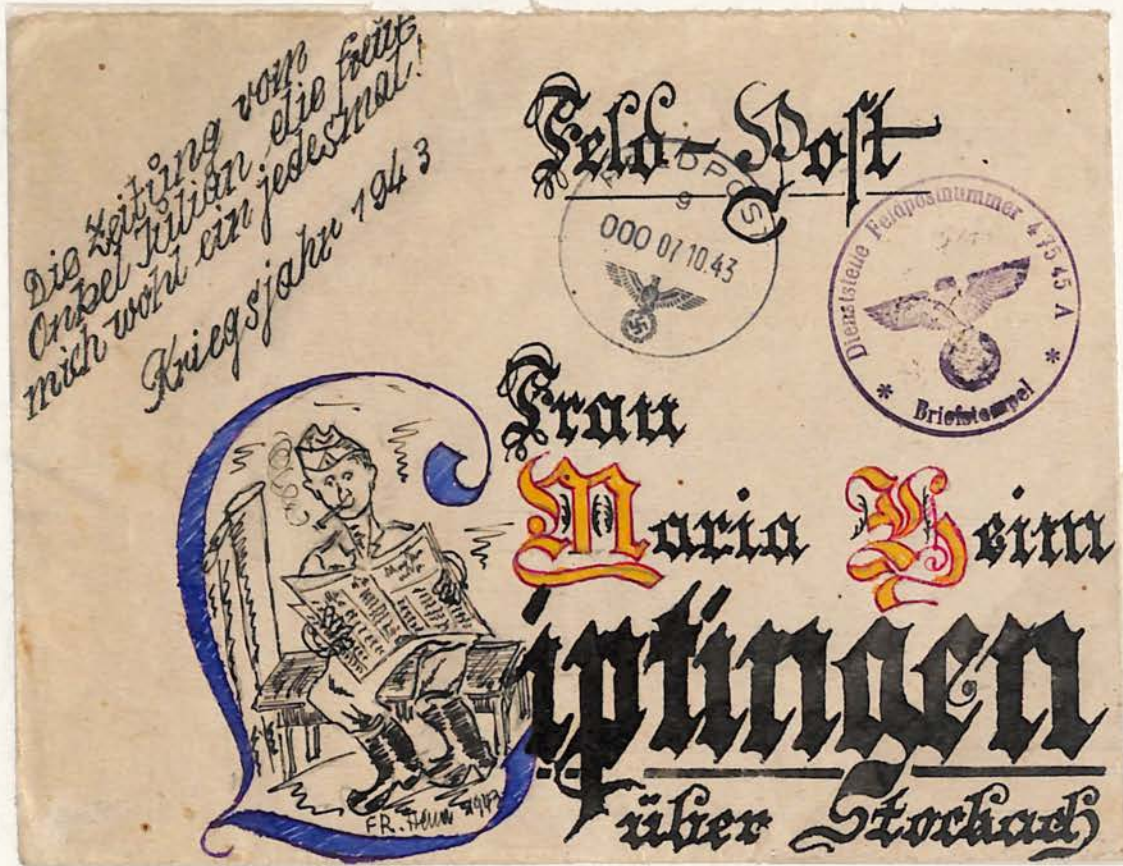 Die Zeitung vom
Onkel Julian die freut
mich wohl ein jedesmal!
Kriegsjahr 1943
Feld-Post
FELDPOST
9
000 07.10.43
Dienststelle Feldpostnummer 47545 A
* Briefstempel *
Frau
Maria Heim
Liptingen
über Stockach
FR. Heim 1943